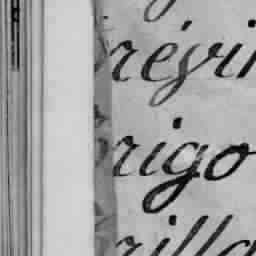 révi
rigo
rilla